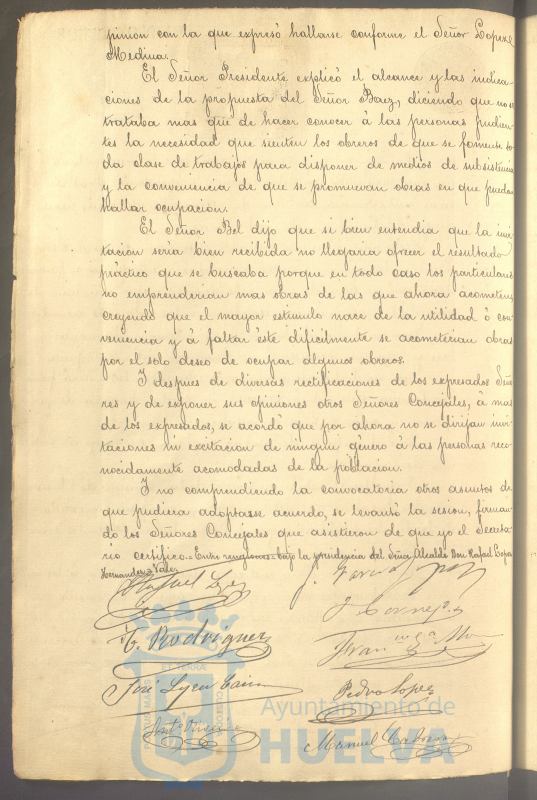 pinion con la que expresó hallarse conforme el Señor Lopez
Medina.
El Señor Presidente explicó el alcance y las indica-
ciones de la propuesta del Señor Baez, diciendo que no se
trataba mas que de hacer conocer á las personas pudien-
tes la necesidad que sienten los obreros de que se fomente to-
da clase de trabajos para disponer de medios de subsistencia
y la conveniencia de que se promuevan obras en que puedan
hallar ocupacion.
El Señor Bel dijo que si bien entendia que la invi-
tacion seria bien recibida no llegaria ofrecer el resultado
práctico que se buscaba porque en todo caso los particulares
no emprenderian mas obras de las que ahora acometen,
creyendo que el mayor estimulo nace de la utilidad ó con-
veniencia y á faltar éste dificilmente se acometerian obras
por el solo deseo de ocupar algunos obreros.
I despues de diversas rectificaciones de los expresados Seño-
res y de exponer sus opiniones otros Señores Concejales, á mas
de los expresados, se acordó que por ahora no se dirijan invi-
taciones ni excitacion de ningun género á las personas reco-
nocidamente acomodadas de la poblacion.
I no comprendiendo la convocatoria otros asuntos de
que pudiera adoptarse acuerdo, se levantó la sesion, firman-
do los Señores Concejales que asistieron de que yo el Secreta-
rio certifico.=Entre renglones=bajo la presidencia del Señor Alcalde Don Rafael Lopez
Hernandez=Vale=
Rafael
T. Rodriguez
José
Pedro Lopez
Manuel
PORTUS MARIS
ET TERRAE
CUSTODIA
Ayuntamiento de
HUELVA